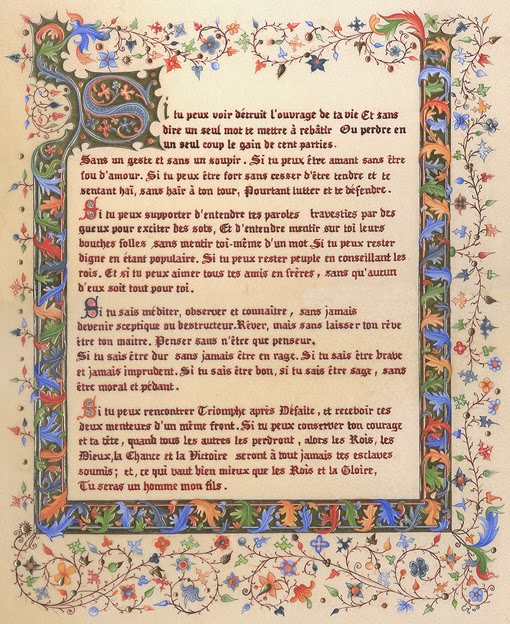 Si tu peux voir détruit l'ouvrage de ta vie Et sans
dire un seul mot te mettre à rebâtir Ou perdre en
un seul coup le gain de cent parties.
Sans un geste et sans un soupir. Si tu peux être amant sans être
fou d'amour. Si tu peux être fort sans cesser d'être tendre et te
sentant haï, sans haïr à ton tour, Pourtant lutter et te défendre.
Si tu peux supporter d'entendre tes paroles travesties par des
gueux pour exciter des sots, Et d'entendre mentir sur toi leurs
bouches folles sans mentir toi-même d'un mot Si tu peux rester
digne en étant populaire. Si tu peux rester peuple en conseillant les
rois. Et si tu peux aimer tous tes amis en frères, sans qu'aucun
d'eux soit tout pour toi.
Si tu sais méditer, observer et connaître, sans jamais
devenir sceptique ou destructeur. Rêver, mais sans laisser ton rêve
être ton maître. Penser sans n'être que penseur.
Si tu sais être dur sans jamais être en rage. Si tu sais être brave
et jamais imprudent. Si tu sais être bon, si tu sais être sage, sans
être moral et pédant.
Si tu peux rencontrer Triomphe après Défaite, et recevoir ces
deux menteurs d'un même front. Si tu peux conserver ton courage
et ta tête, quand tous les autres les perdront, alors les Rois, les
Dieux, la Chance et la Victoire seront à tout jamais tes esclaves
soumis; et, ce qui vaut bien mieux que les Rois et la Gloire,
Tu seras un homme mon fils.